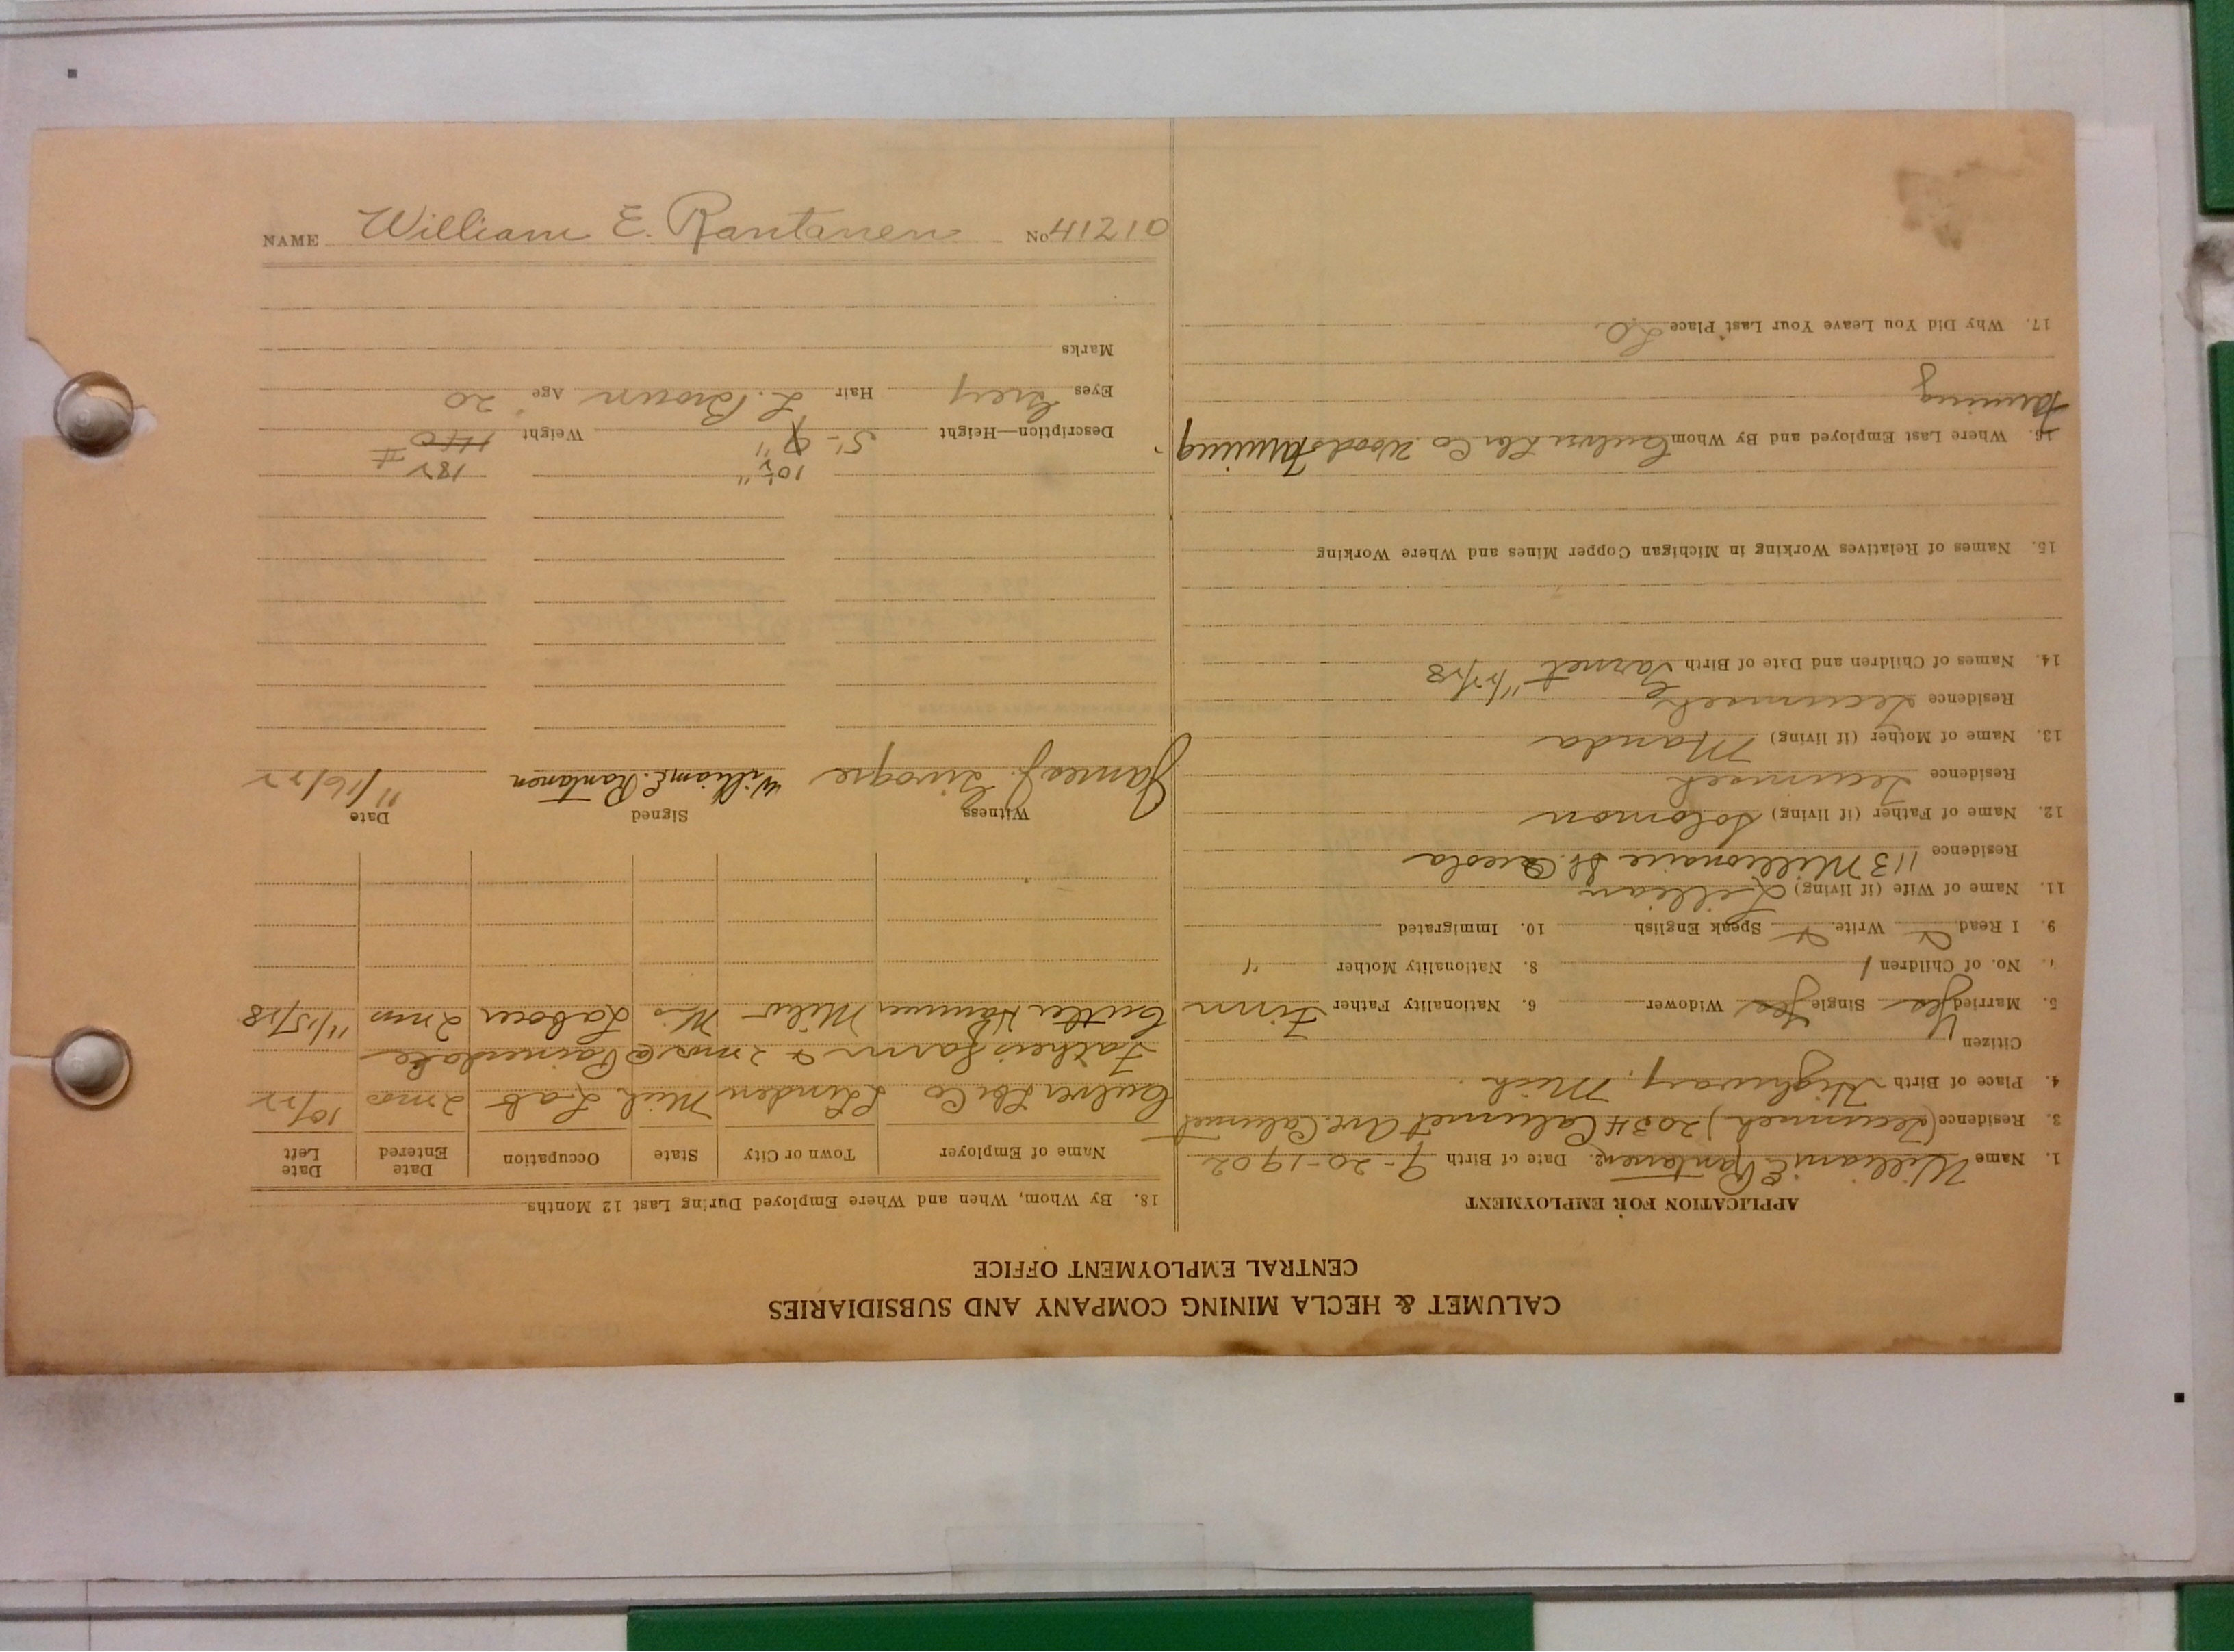 CALUMET & HECLA MINING COMPANY AND SUBSIDIARIES
CENTRAL EMPLOYMENT OFFICE
APPLICATION FOR EMPLOYMENT
1. Name William E Rantanen 2. Date of Birth 9-20-1902
3. Residence (Tecumseh) 2034 Calumet Ave. Calumet
4. Place of Birth Highway, Mich.
Citizen Yes
5. Married Yes Single Widower 6. Nationality Father Finn
7. No. of Children 1 8. Nationality Mother "
9. I Read Write Speak English 10. Immigrated
11. Name of Wife (if living) Lillian
Residence 113 Millionaire St. Osceola
12. Name of Father (if living) Solomon
Residence Tecumseh
13. Name of Mother (if living) Manda
Residence Tecumseh
14. Names of Children and Date of Birth
15. Names of Relatives Working in Michigan Copper Mines and Where Working
16. Where Last Employed and By Whom Culver Lbr Co. Woods
17. Why Did You Leave Your Last Place LO
18. By Whom, When and Where Employed During Last 12 Months
Name of Employer Town or City State Occupation Date Entered Date Left
Culver Lbr Co Linden Mich Lab 2 mos 10/22
Fathers farm 2 mos @ Painesdale
Cutler Hammer Milw Wis Laborer 2 mos
Witness Signed Date
James J. William E. Rantanen 11/16/22
10½" 182 #
Description—Height 5'- 9" Weight 140
Eyes Grey Hair L. Brown Age 20
Marks
NAME William E. Rantanen No. 41210